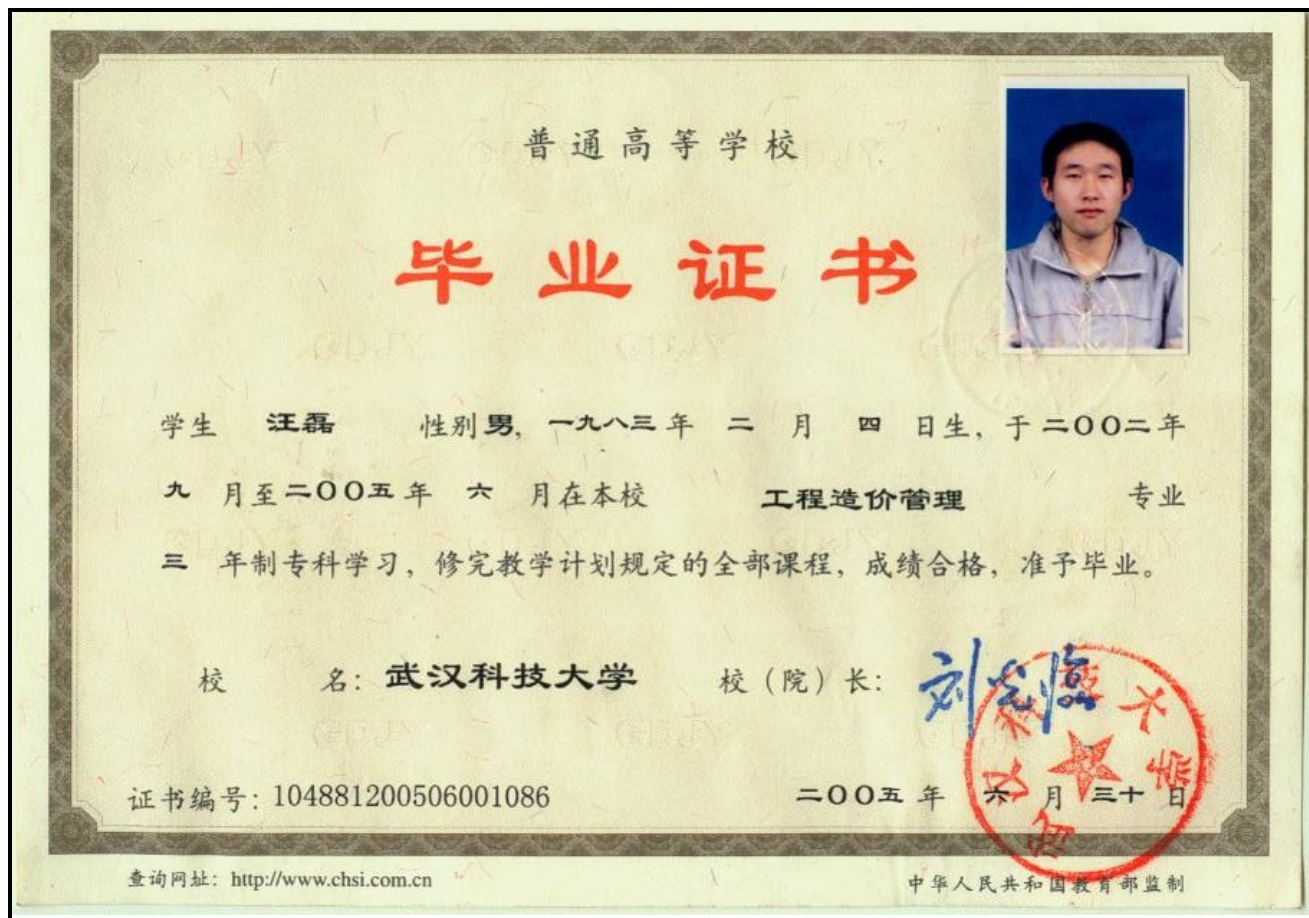 普通高等学校
毕业证书
学生 汪磊 性别男, 一九八三年 二 月 四 日生, 于二〇〇二年
九 月至二〇〇五年 六 月在本校 工程造价管理 专业
三 年制专科学习, 修完教学计划规定的全部课程, 成绩合格, 准予毕业。
校 名: 武汉科技大学 校（院）长: 刘光临
证书编号: 104881200506001086 二〇〇五 年 六 月 三十 日
查询网址: http://www.chsi.com.cn 中华人民共和国教育部监制
武汉科技大学